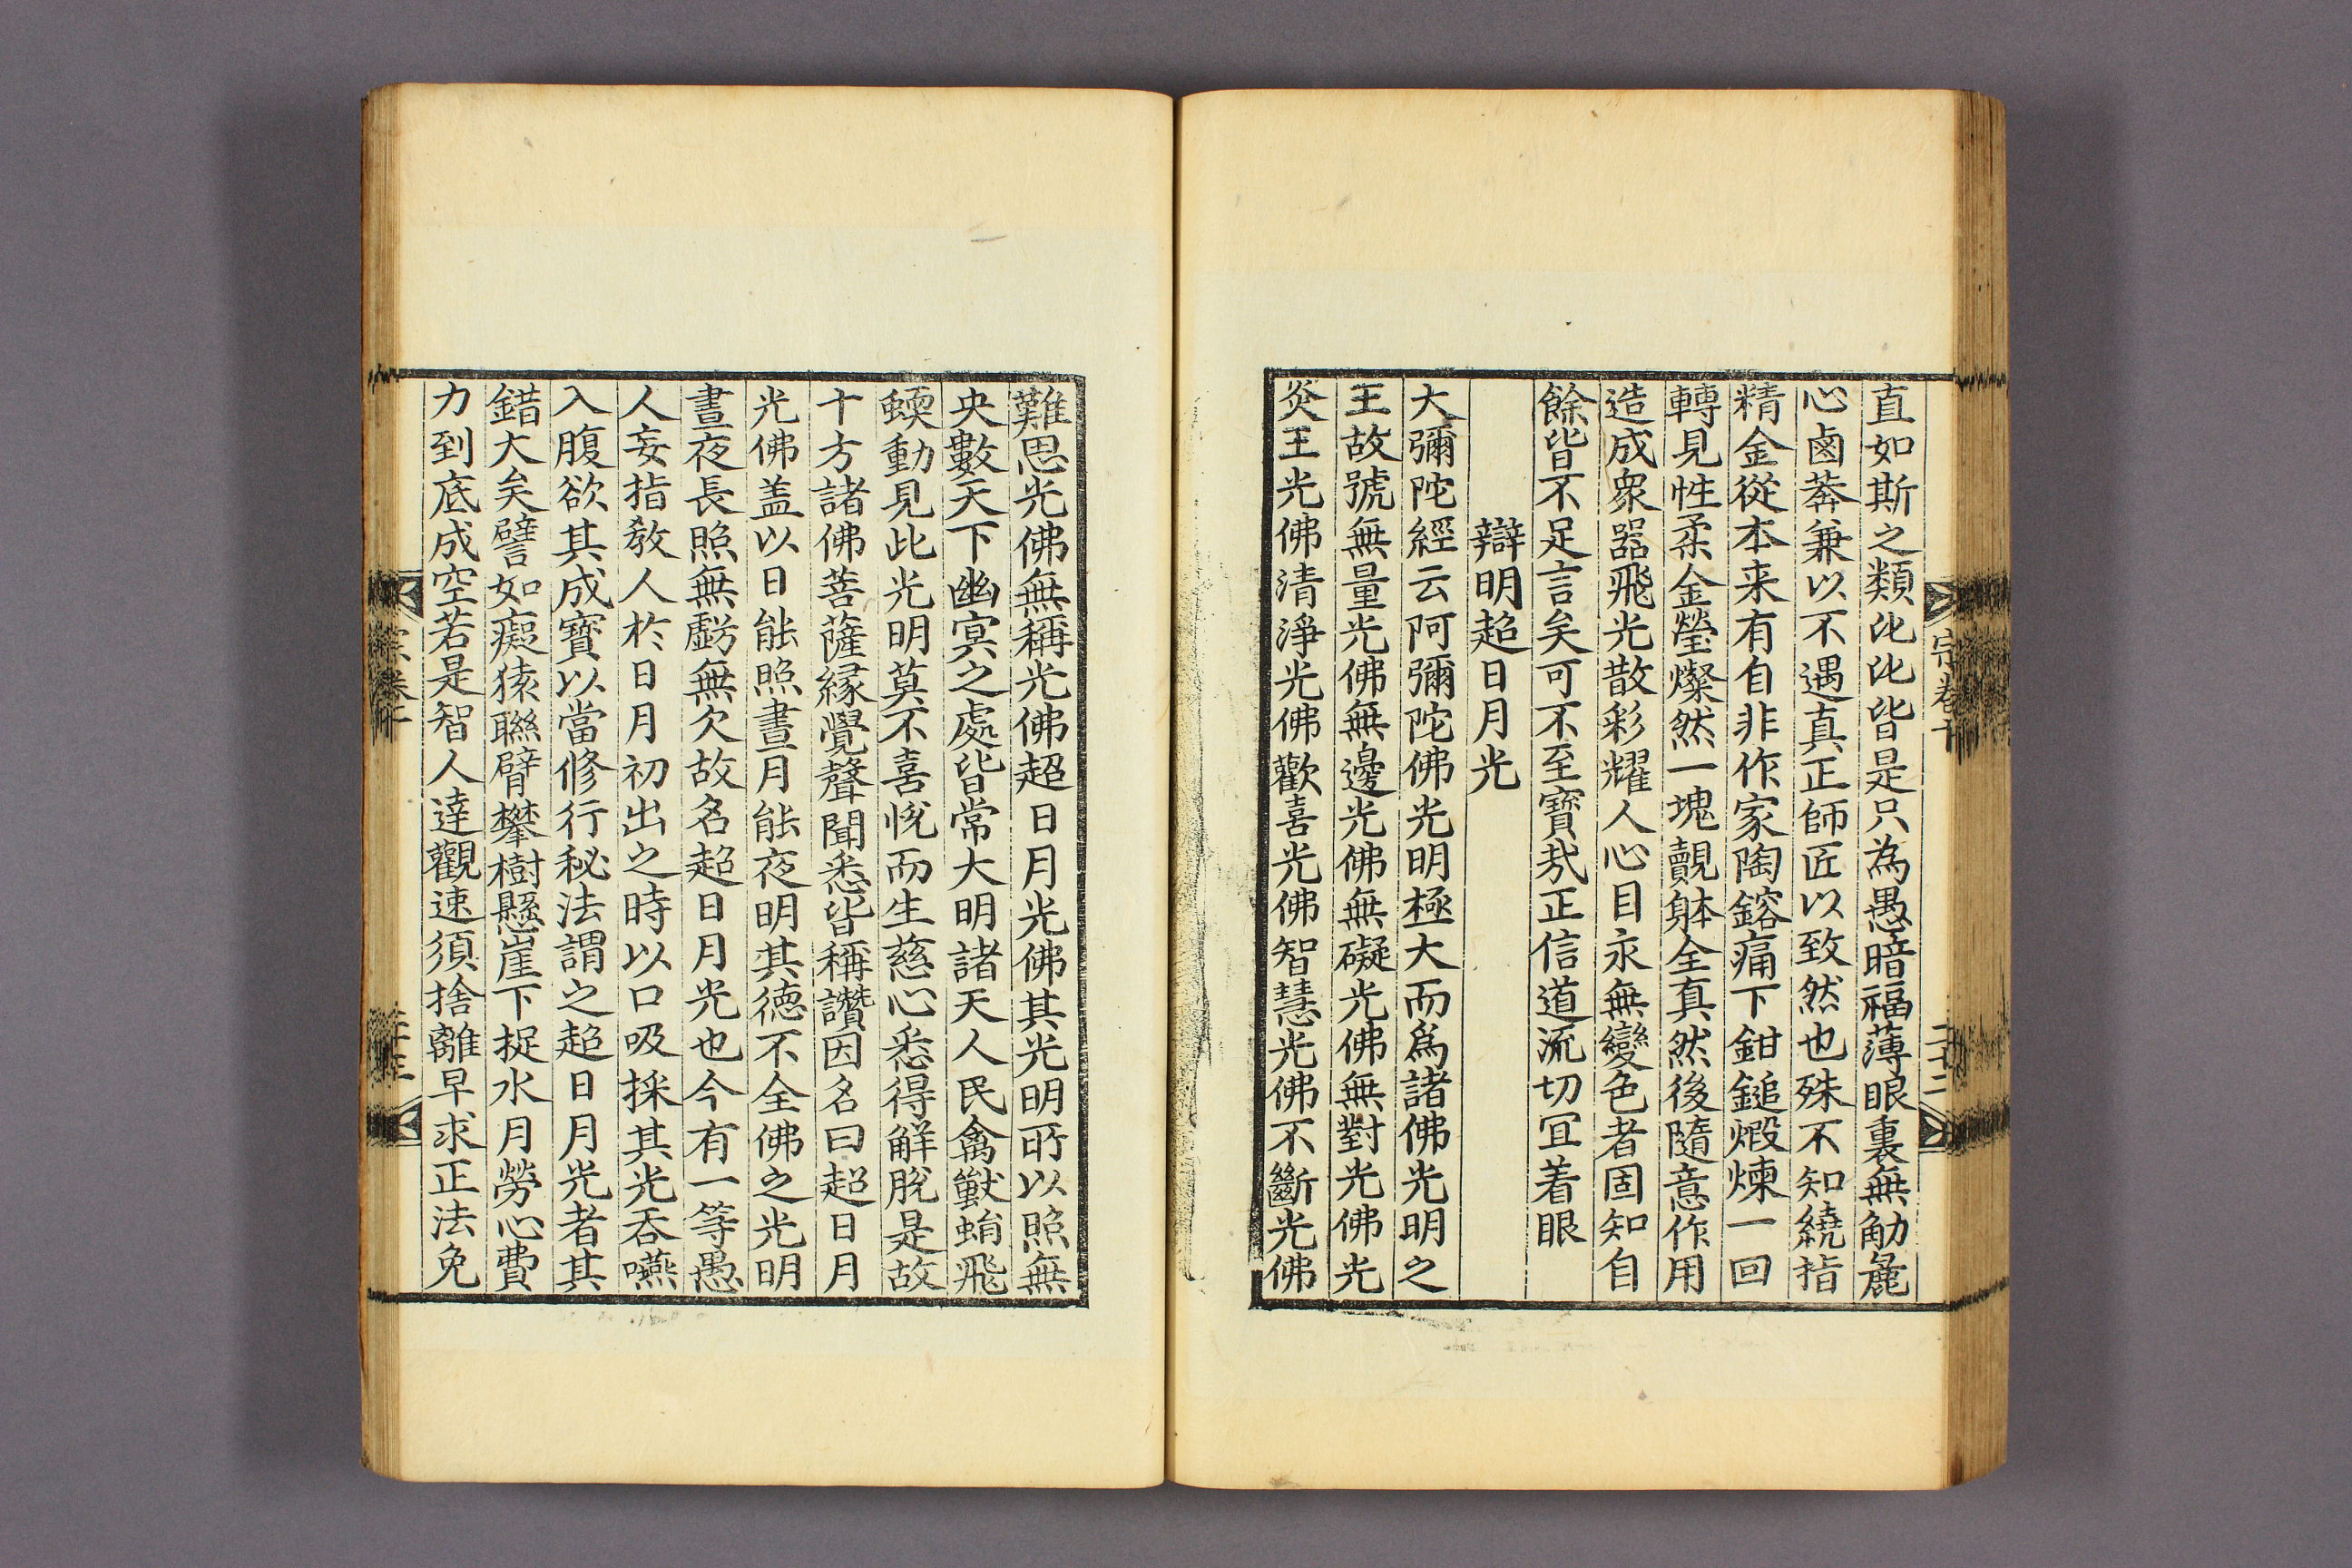 直如斯之類比比皆是只為愚暗福薄眼裏無觔麁
心鹵莽兼以不遇真正師匠以致然也殊不知繞指
精金從本来有自非作家陶鎔痛下鉗鎚煅煉一回
轉見性柔金瑩燦然一塊覿躰全真然後隨意作用
造成衆器飛光散彩耀人心目永無變色者固知自
餘皆不足言矣可不至寶㢤正信道流切冝着眼
辯明超日月光
大彌陀經云阿彌陀佛光明極大而爲諸佛光明之
王故號無量光佛無邊光佛無礙光佛無對光佛光
炎王光佛清淨光佛歡喜光佛智慧光佛不斷光佛
難思光佛無稱光佛超日月光佛其光明所以照無
央數天下幽冥之處皆常大明諸天人民禽獸蜎飛
蝡動見此光明莫不喜悅而生慈心悉得解脫是故
十方諸佛菩薩緣覺聲聞悉皆稱讚因名曰超日月
光佛盖以日能照晝月能夜明其德不全佛之光明
晝夜長照無虧無欠故名超日月光也今有一等愚
人妄指教人於日月初出之時以口吸採其光吞嚥
入腹欲其成寶以當修行秘法謂之超日月光者其
錯大矣譬如癡猿聯臂攀樹懸崖下捉水月勞心費
力到底成空若是智人達觀速須捨離早求正法免